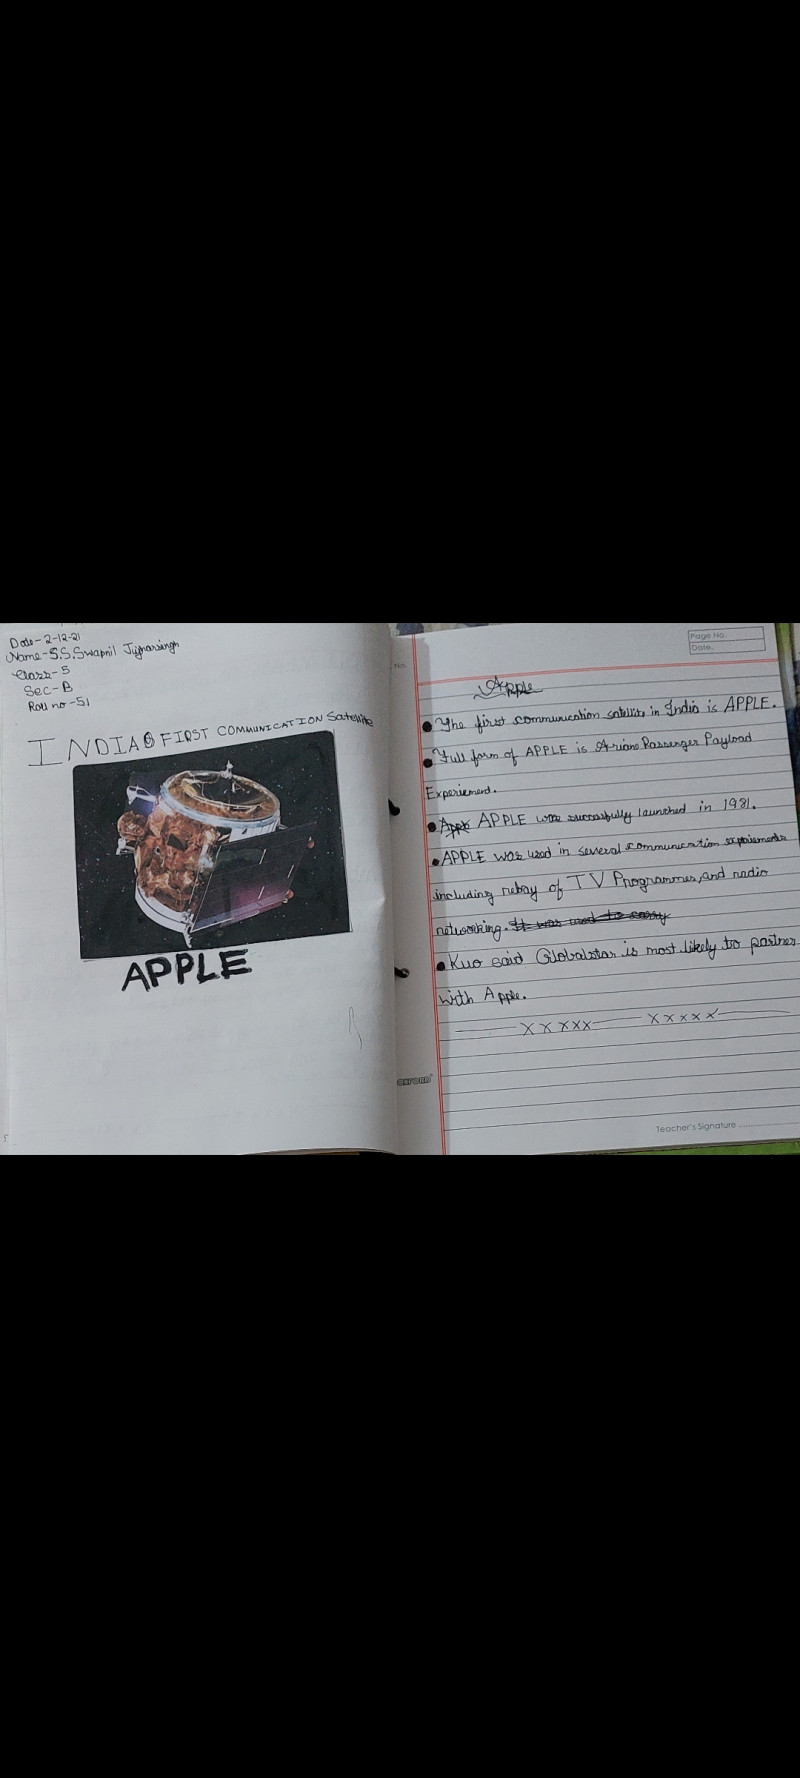 Date- 2-12-21
Name- S.S.Swapnil
Class- 5
Sec- B
Roll no -51
INDIAS FIRST COMMUNICATION Satellite
APPLE
No.
Page No.
Date.
Apple
The first communication satellite in India is APPLE.
Full form of APPLE is Ariane Passenger Payload
Experiement.
APPLE was successfully launched in 1981.
APPLE was used in several communication
including relay of TV Programmes, and radio
networking. It was used to carry
Kuo said Globalstar is most likely to partner
with Apple.
XXXXX XXXXX
OXFORD
Teacher's Signature